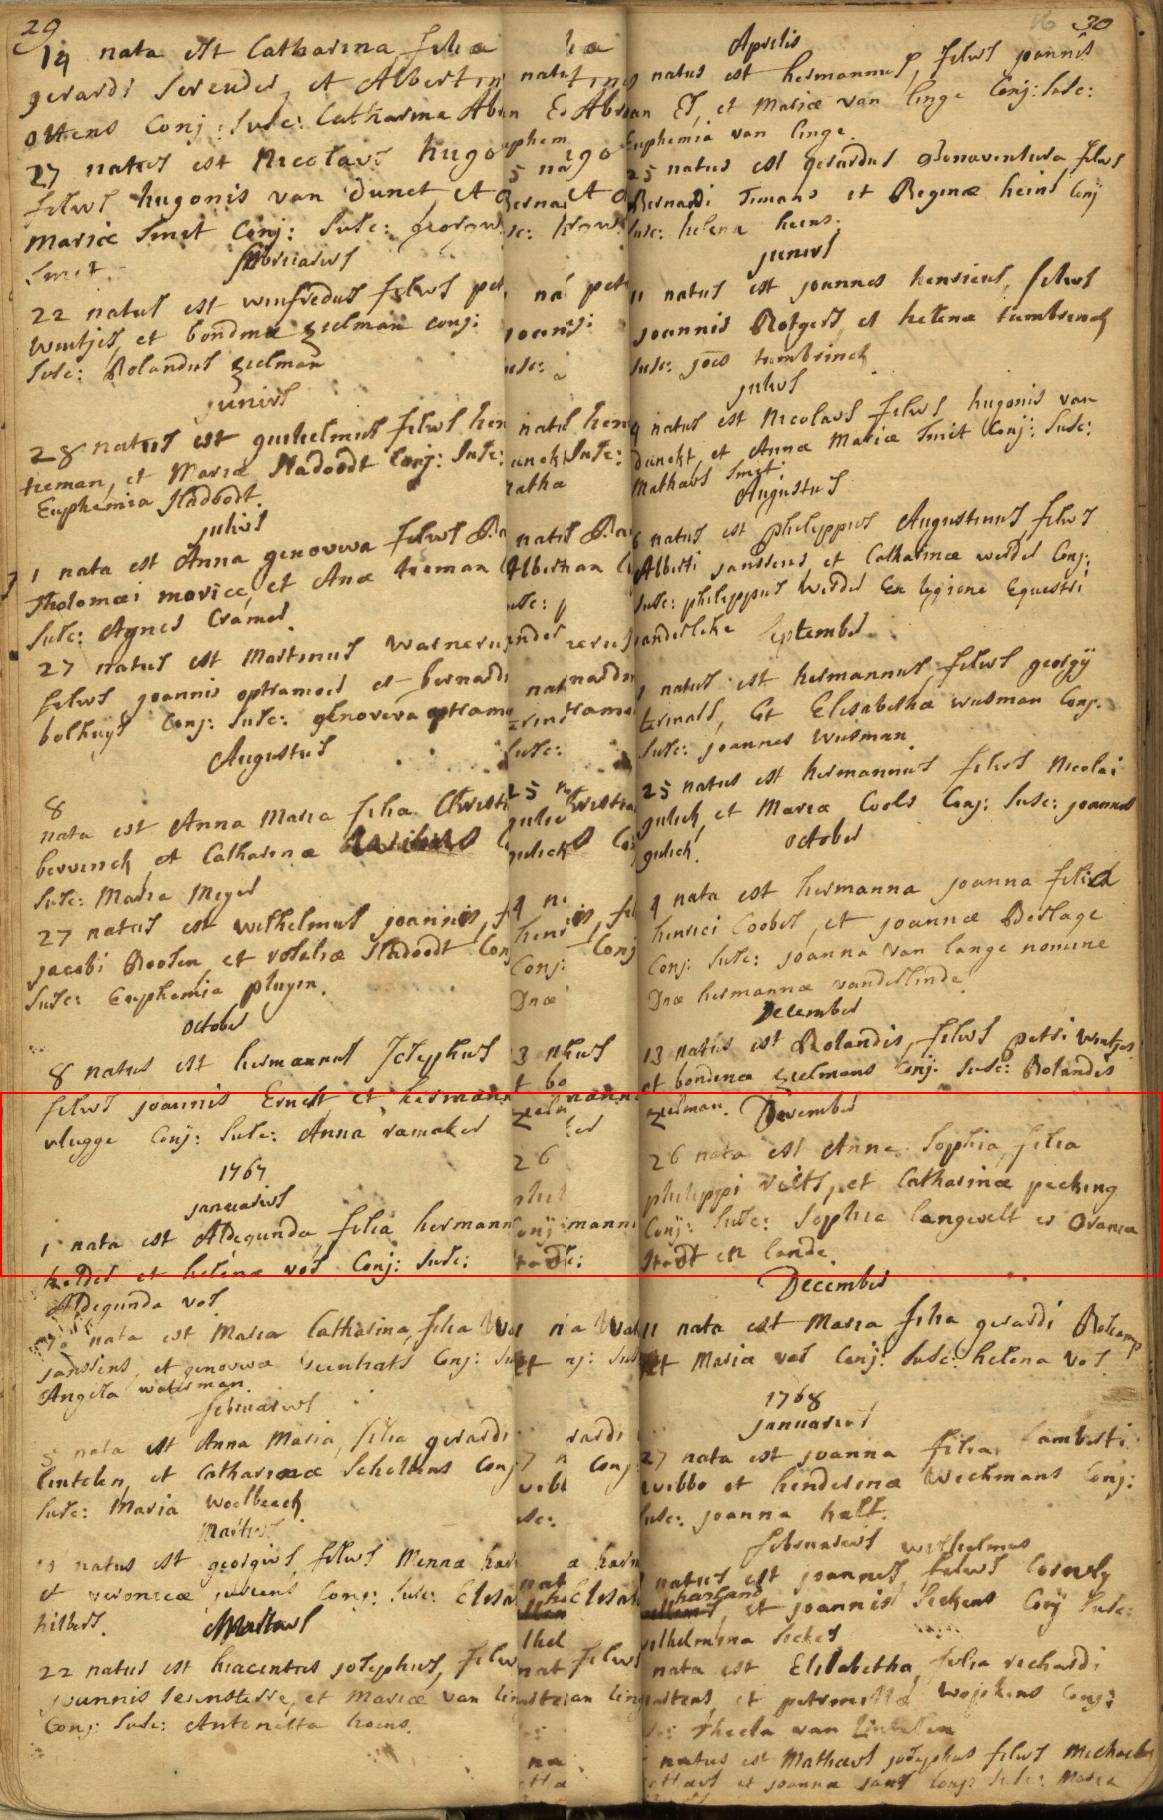 29
19 nata est Catharina filia
gerardi Serender, et Albertin
ottens Conj: Susc: Catharina
27 natus est Nicolaus hugo
filius hugonis van dunct, et
Mariæ Smit Conj: Susc: georgius
Smit.
februarius
22 natus est winfredus filius pet
wintjes, et bondinæ zielman conj:
Susc: Rolandus zielman
junius
28 natus est guilielmus filius hen
tieman, et Mariæ Stadoodt Conj: Susc:
Euphemia Stadoodt.
julius
1 nata est Anna genoveva filius Bar
tholomæi morice, et Anæ tieman
Susc: Agnes Cramer.
27 natus est Martinus Warnerus
filius joannis optramoer et bernardi
bolhuys Conj: Susc: genoveva optramo
Augustus
8
nata est Anna Maria filia Christi
bervinck, et Catharinæ
Susc: Maria Meyer
27 natus est wilhelmus joannis, fi
jacobi Rooten et rosaliæ Stadoodt Conj
Susc: Euphemia pluym.
october
8 natus est hermannus Josephus
filius joannis Ernest et hermann
vlugge Conj: Susc: Anna ramaker
1767
januarius
1 nata est Aldegunda filia hermann
helder et helenæ vos Conj: Susc:
Aldegunda vos
nata est Maria Catharina, filia Wal
janssens et genovevæ Conj: Sus
Angela waterman.
februarius
5 nata est Anna Maria, filia gerardi
lintelen, et Catharinæ Scholtens Conj
Susc: Maria Woelbeeck
Martius
natus est georgius, filius Menna har
et veronicæ jurrens Conj: Susc: Elisa
hilbers.
Martius
22 natus est hiacintus josephus, filius
joannis leensterre, et Mariæ van ling
Conj: Susc: Antonetta koens.
30
Aprilis
natus est hermannus P, filius joannis
Es, et Mariæ van linge Conj: Susc:
Euphemia van linge.
25 natus est gerardus Bonaventura filius
Bernardi Timans et Reginæ heins Conj
Susc: helena heins.
junius
11 natus est joannes henricus, filius
joannis Rotgers, et helenæ tumbrinck
Susc: joes tumbrinck
julius
9 natus est Nicolaus filius hugonis van
dunckt, et Annæ Mariæ Smit Conj: Susc:
Mathæus Smit.
Augustus
6 natus est philippus Augustinus filius
Alberti janssens, et Catharinæ werder Conj:
Susc: philippus Werder Ex legione Equestri
anderleke
September
1 natus est hermannus, filius georgij
termals, Et Elisabethæ wusman Conj.
Susc: joannes Wusman.
25 natus est hermannus filius Nicolai
gulick, et Mariæ Cools Conj: Susc: joannes
gulick.
october
9 nata est hermanna joanna filia
henrici Coobes, et joannæ Berlage
Conj: Susc: joanna van lange nomine
Dnæ hermannæ vanderlinde.
December
13 natus est Rolandis, filius petri wintjes
et bondinæ zielmans Conj: Susc: Rolandis
zielman.
December
26 nata est Anna Sophia, filia
philippi voits, et Catharinæ pecking
Conj: Susc: Sophia langevelt es Oraniea
Stadt en lande.
December
11 nata est Maria filia gerardi Rotcamp
et Mariæ vos Conj: Susc: helena vos
1768
januarius
27 nata est joanna filia, lamberti
wibbo et henderinæ Wichmans Conj:
Susc: joanna hatt.
februarius
wilhelmus
natus est joannes filius Cornely
harland
et joannis Seekens Conj Susc:
wilhelmina Seekes
nata est Elisabetha, filia richardi
et petronilla wojekens Conj:
Thecla van lintelen
natus est Mathæus josephus filius Michaelis
et joanna Conj: Susc: Maria